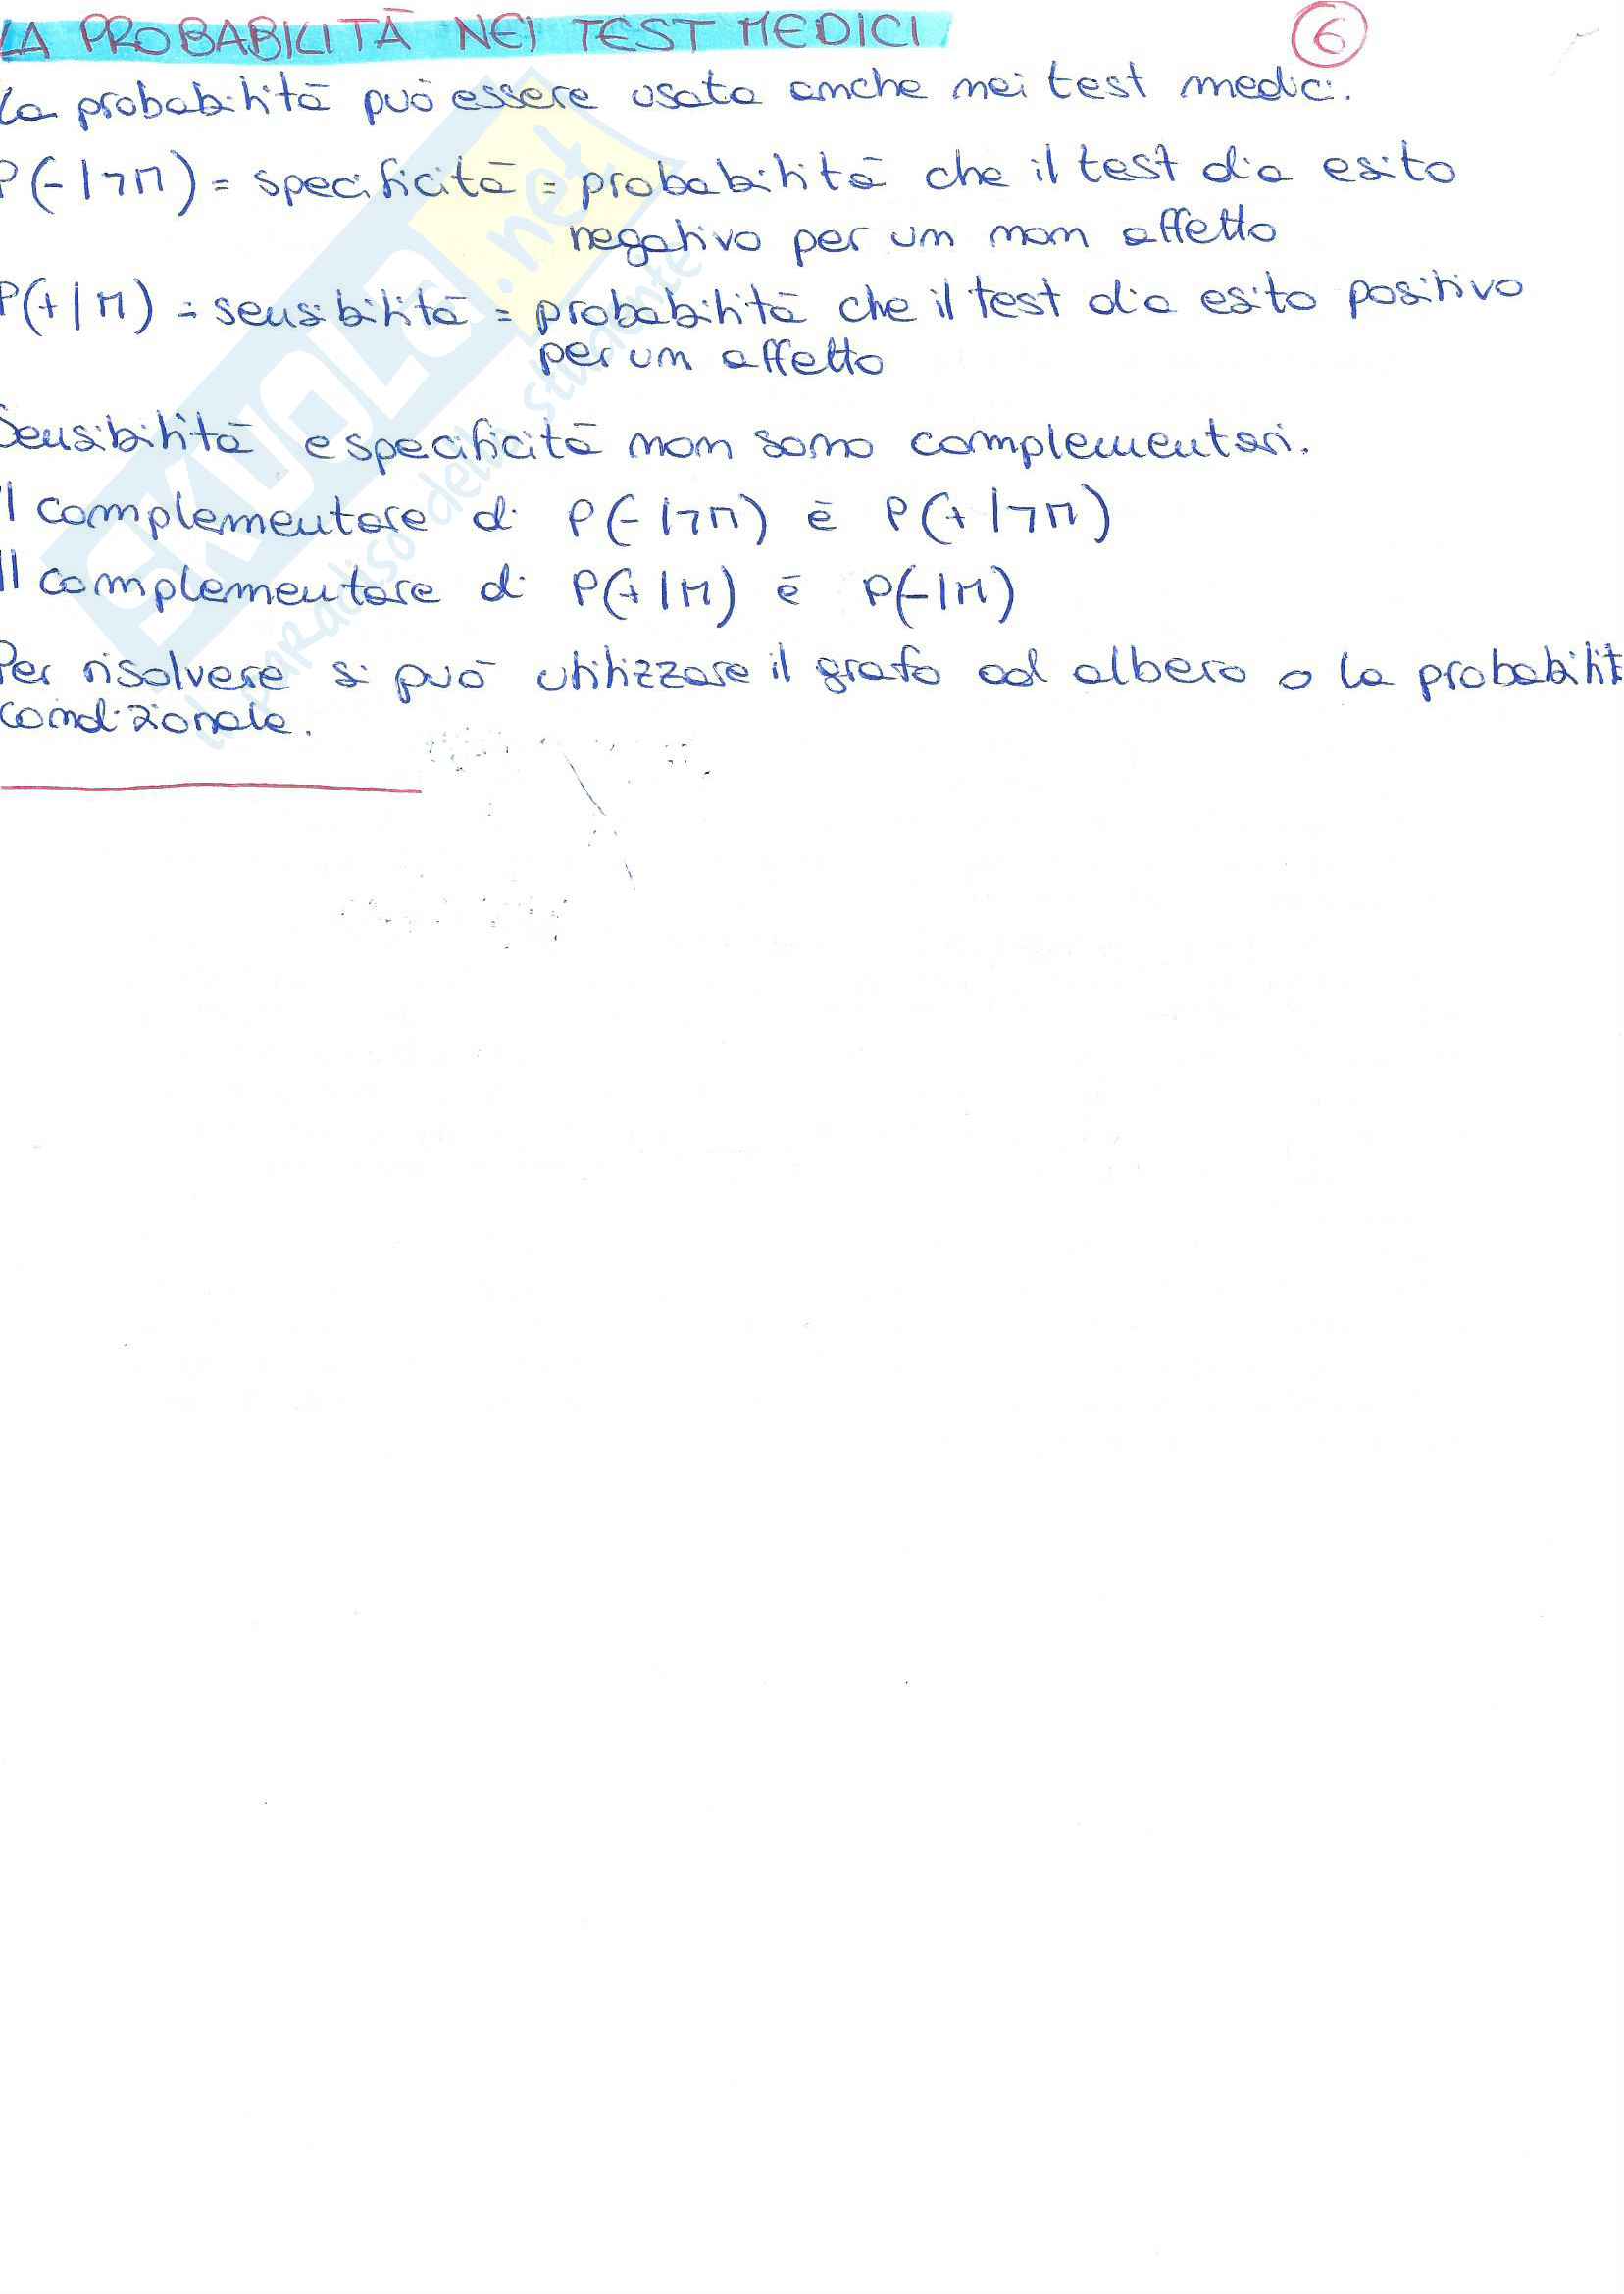 LA PROBABILITÀ NEI TEST MEDICI
6
La probabilità può essere usata anche nei test medici.
P(-|¬M) = specificità = probabilità che il test dia esito
negativo per un non affetto
P(+|M) = sensibilità = probabilità che il test dia esito positivo
per un affetto
Sensibilità e specificità non sono complementari.
Il complementare di P(-|¬M) è P(+|¬M)
Il complementare di P(+|M) è P(-|M)
Per risolvere si può utilizzare il grafo ad albero o la probabilit
condizionale.
SKUOLA.net
il paradiso dello studente